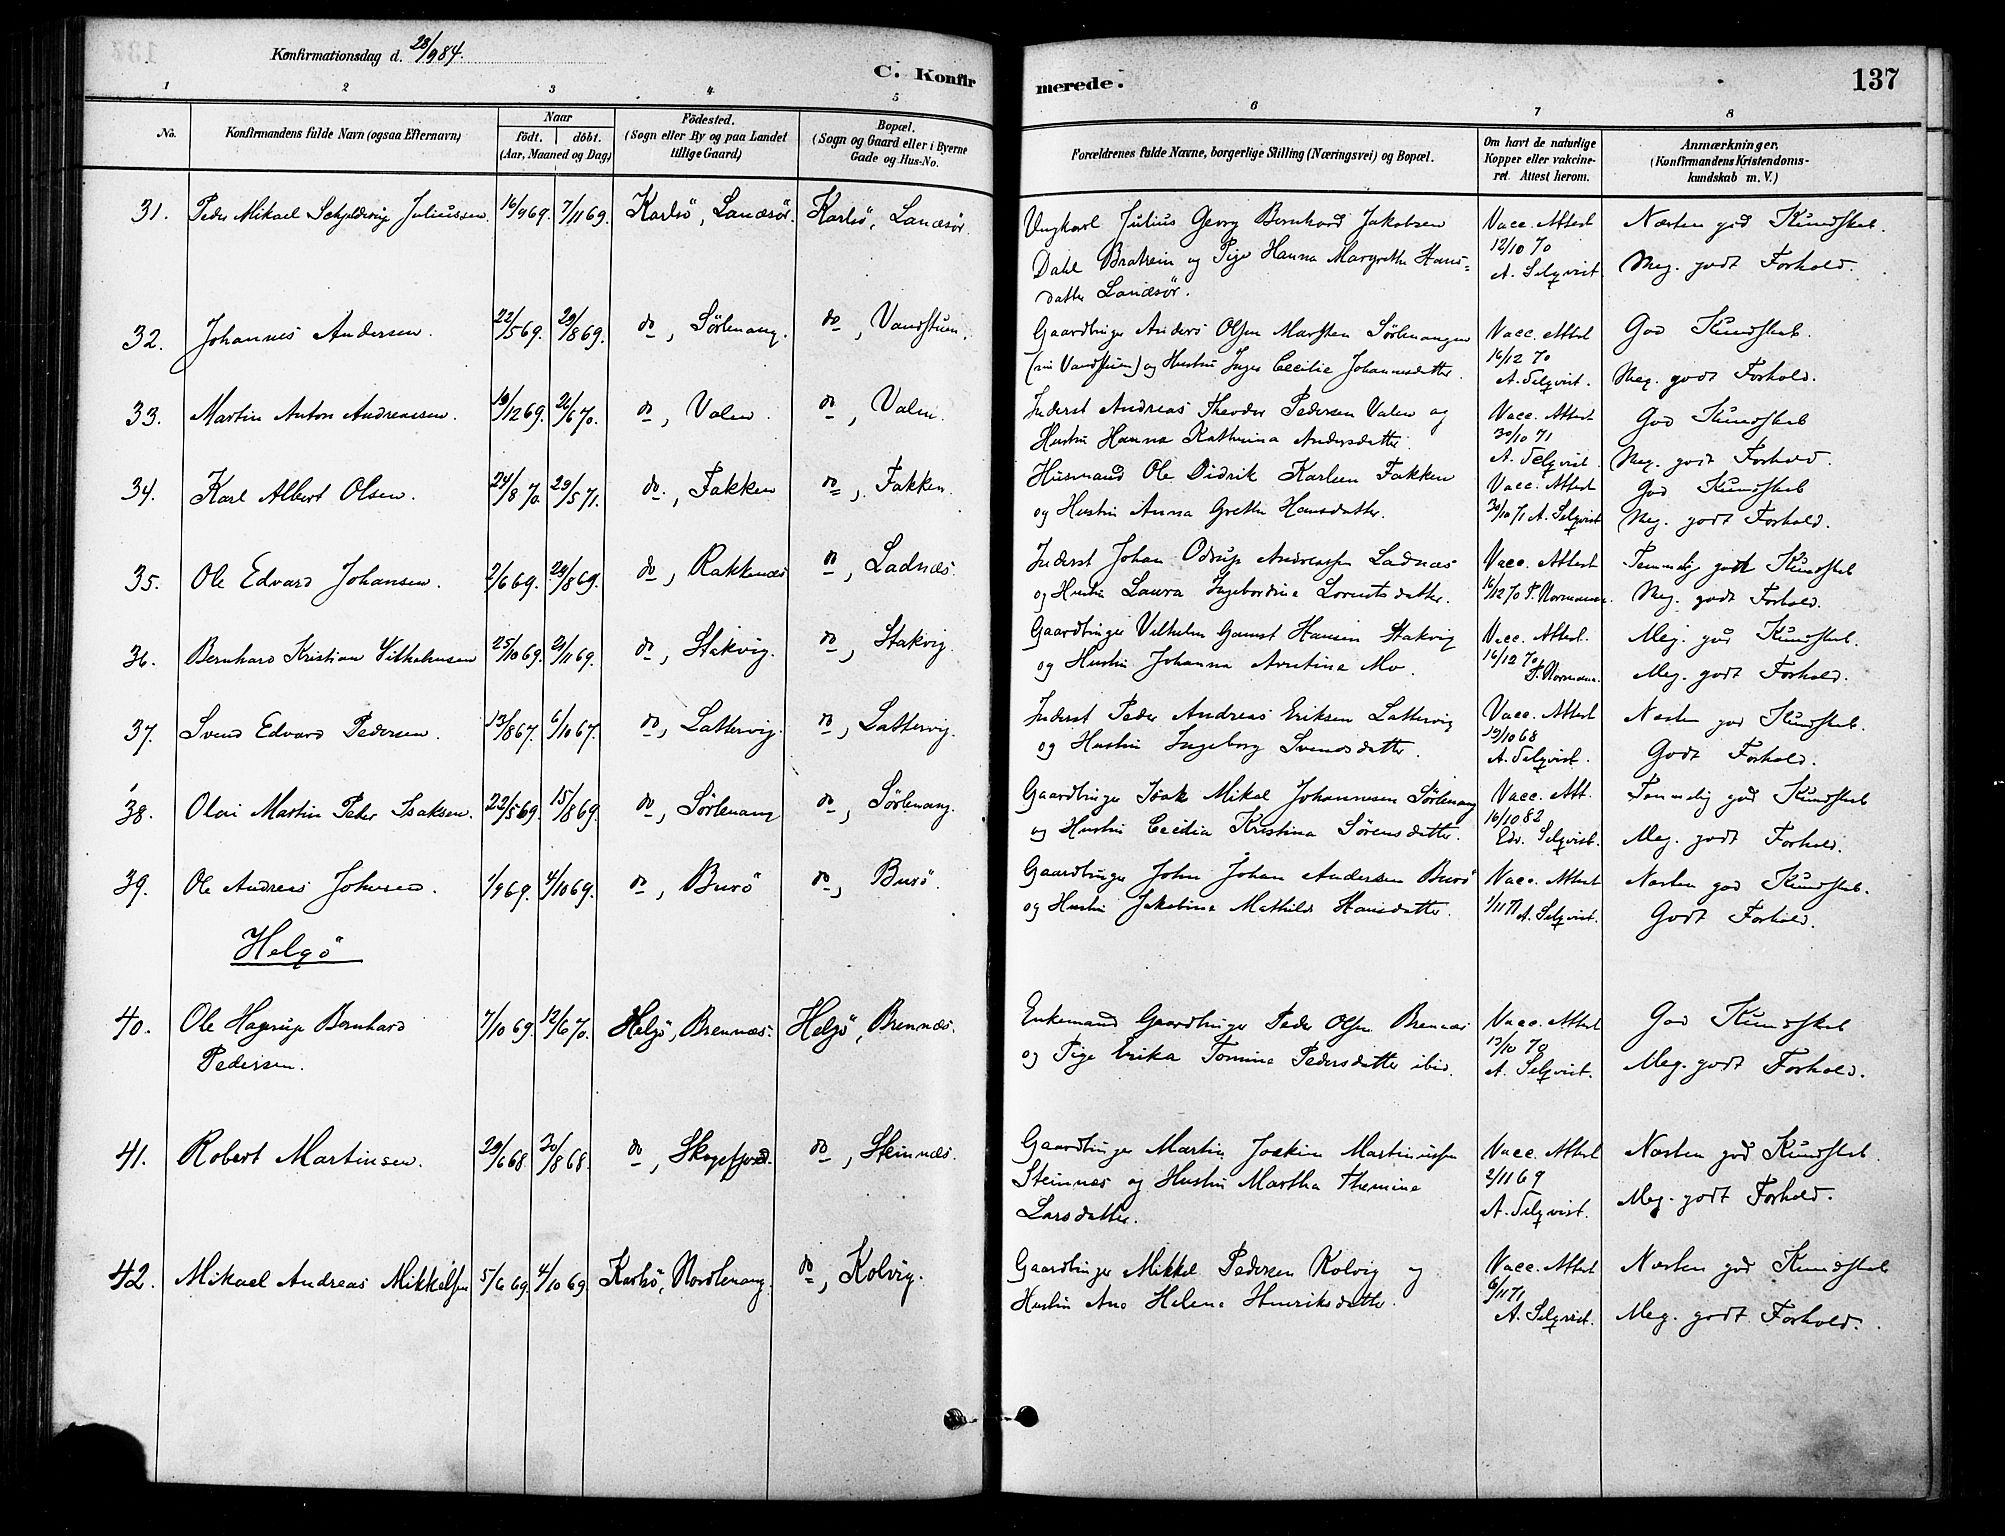 Konfirmationsdag d. 28/9 84.
C. Konfirmerede.
137
1 2 3 4 5 6 7 8
No. Konfirmandens fulde Navn (ogsaa Efternavn) Naar födt. döbt. (Aar, Maaned og Dag) Födested. (Sogn eller By og paa Landet tillige Gaard) Bopæl. (Sogn og Gaard eller i Byerne Gade og Hus-No. Forældrenes fulde Navne, borgerlige Stilling (Næringsvei) og Bopæl. Om havt de naturlige Kopper eller vakcineret. Attest herom. Anmærkninger. (Konfirmandens Kristendomskundskab m. V.)
31. Peder Mikael Schjelderup Juliussen. 16/9 69. 7/11 69. Karlsö, Lanesör. Karlsö, Lanesör. Ungkarl Julius Georg Bernhard Jakobsen Vacc. Attest Næsten god Kundskab.
Dahl Bratrein og Pige Hanna Margrethe Hans= 12/10 70 Meg. godt Forhold.
datter Lanesör. A. Selqvist.
32. Johannes Andersen. 22/5 69. 29/8 69. do, Sörlenang. do, Vandstuen. Gaardbruger Anders Olsen Sörlenangen Vacc. Attest God Kundskab.
(nu Vandstuen) og Hustru Inger Cecilie Johannesdatter. 16/12 70 A. Selqvist. Meg. godt Forhold.
33. Martin Anton Andreassen. 19/12 69. 26/6 70. do, Valen. do, Valen. Inderst Andreas Theodor Pedersen Valen og Vacc. Attest God Kundskab
Hustru Hanna Kathrina Andersdatter. 30/10 71 A. Selqvist. Meg. godt Forhold.
34. Karl Albert Olsen. 24/8 70. 29/5 71. do., Fakken do, Fakken. Husmand Ole Didrik Karlsen Fakken Vacc. Attest God Kundskab
og Hustru Anna Grethe Hansdatter. 30/10 71 A. Selqvist Meg. godt Forhold.
35. Ole Edvard Johansen. 2/6 69. 29/8 69. do, Rakkenæs do, Ladnæs. Inderst Johan Odrup Andreassen Ladnæs Vacc. Attest Temmelig godt Kundskab
og Hustru Laura Ingebordina Lorentsdatter. 16/12 70 P. Normann. Meg. godt Forhold.
36. Bernhard Kristian Vilhelmsen 25/10 69. 21/11 69. do, Stakvig. do, Stakvig. Gaardbruger Vilhelm Gamst Hansen Stakvig Vacc. Attest. Meg. god Kundskab.
og Hustru Johanna Mo. 16/12 70 P. Normann. Meg. godt Forhold.
37. Svend Edvard Pedersen. 13/8 67. 6/10 67. do, Lattervig. do, Lattervig. Inderst Peder Andreas Eriksen Lattervig Vacc. Attest Næsten god Kundskab.
og Hustru Ingeborg Svendsdatter. 19/10 68 A. Selqvist. Godt Forhold.
38. Olai Martin Peter Isaksen. 22/5 69. 15/8 69. do, Sörlenang do, Sörlenang. Gaardbruger Isak Mikal Johannesen Sörlenang Vacc. Att. Temmelig god Kundskab
og Hustru Cecilia Kristina Sörensdatter. 16/10 82 Edv. Selqvist. Meg. godt Forhold.
39. Ole Andreas Johnsen. 1/9 69. 4/10 69. do, Burö do, Burö. Gaardbruger John Johan Andersen Burö Vacc. Attest Næsten god Kundskab.
og Hustru Jakobina Mathilde Hansdatter. A. Selqvist. Godt Forhold.
Helgö
40. Ole Hagerup Bernhard 7/10 69. 12/6 70. Helgö, Brennæs. Helgö, Brennæs. Enkemand Gaardbruger Peder Olsen Brennæs Vacc. Attest God Kundskab
Pedersen. og Pige Erika Tomine Pedersdatter ibid. 13/10 70 A. Selqvist. Meg. godt Forhold.
41. Robert Martinsen. 29/6 68. 30/8 68. do, Skogsfjord. do, Steinnæs. Gaardbruger Martin Joakim Martinussen Vacc. Attest Næsten god Kundskab.
Steinnæs og Hustru Martha Themine 2/11 69 Meg. godt Forhold.
Larsdatter. A. Selqvist.
42. Mikael Andreas Mikkelsen 5/6 69. 4/10 69. Karlsö, Nordlenang. do, Kolvig. Gaardbruger Mikkel Pedersen Kolvig og Vacc. Attest Næsten god Kundskab
Hustru Ane Helena Henriksdatter. 6/11 71 A. Selqvist. Meg. godt Forhold.